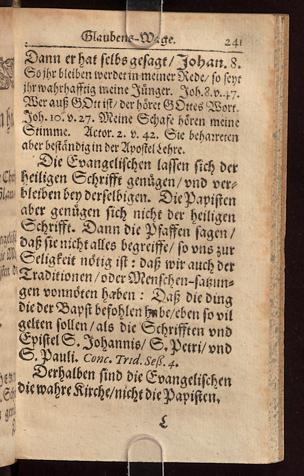 Glaubens-Wage. 241
Dann er hat selbs gesagt / Johan. 8.
So jhr bleiben werdet in meiner Rede / so seyt
jhr wahrhafftig meine Jünger. Joh. 8. v. 47.
Wer auß GOtt ist / der höret GOttes Wort.
Joh. 10. v. 27. Meine Schafe hören meine
Stimme. Actor. 2. v. 42. Sie beharreten
aber beständig in der Apostel Lehre.
Die Evangelischen lassen sich der
heiligen Schrifft genügen / vnd ver-
bleiben bey derselbigen. Die Papisten
aber genügen sich nicht der heiligen
Schrifft. Dann die Pfaffen sagen /
daß sie nicht alles begreiffe / so vns zur
Seligkeit nötig ist: daß wir auch der
Traditionen / oder Menschen-satzun-
gen vonnöten haben: Daß die ding
die der Bapst befohlen habe / eben so vil
gelten sollen / als die Schrifften vnd
Epistel S. Johannis / S. Petri / vnd
S. Pauli. Conc. Trid. Seß. 4.
Derhalben sind die Evangelischen
die wahre Kirche / nicht die Papisten.